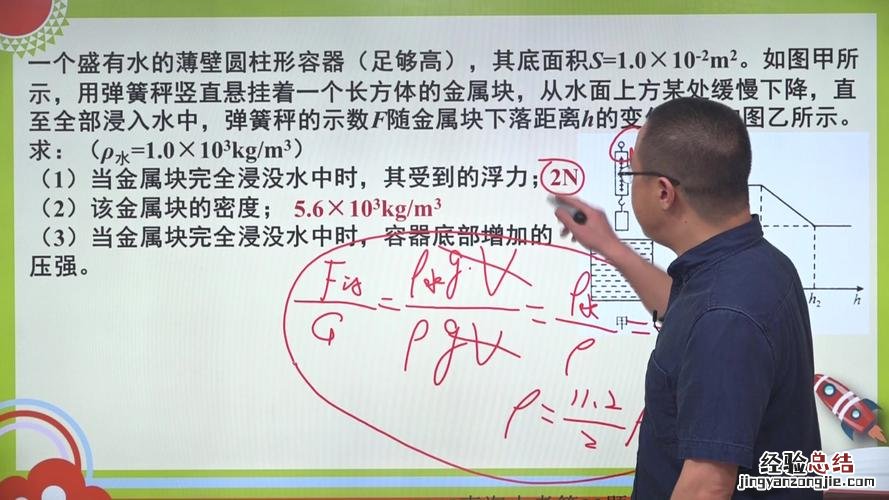 一个盛有水的薄壁圆柱形容器（足够高），其底面积S=1.0×10⁻²m²。如图甲所
示，用弹簧秤竖直悬挂着一个长方体的金属块，从水面上方某处缓慢下降，直
至全部浸入水中，弹簧秤的示数F随金属块下落距离h的变 图乙所示。
求：（ρ水=1.0×10³kg/m³）
（1）当金属块完全浸没水中时，其受到的浮力；2N
（2）该金属块的密度；5.6×10³kg/m³
（3）当金属块完全浸没水中时，容器底部增加的
压强。
F浮/G = ρ水gV/ρgV = ρ水/ρ =
ρ = 11.2/2
甲
h₂
h
经验总结
jingyanzongjie.com